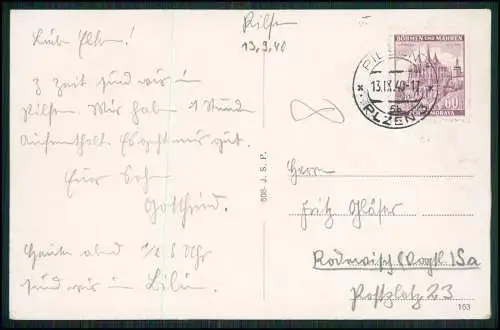 Pilsen
13.9.40
Liebe Eltern!
z Zeit sind wir in
Pilsen. Wir haben 1 Stunde
Aufenthalt. Es geht mir gut.
Euer Sohn
Gottfried.
Heute abend 1/2 6 Uhr
sind wir in
BÖHMEN UND MÄHREN
60
MORAVA
PILSEN 3
13.IX.40-17
5b
PLZEŇ 3
Herrn
Fritz Gläser
Rodewisch (Vogtl.) Sa
Postplatz 23
508 J. S. P.
163